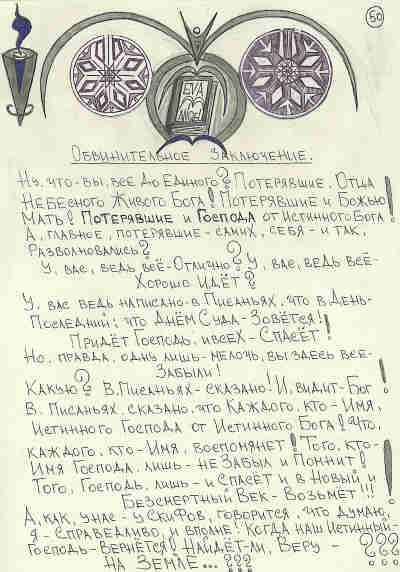 50
EVA
ОБВИНИТЕЛЬНОЕ ЗАКЛЮЧЕНИЕ.
НУ, ЧТО-ВЫ, ВСЕ ДО ЕДИНОГО? ПОТЕРЯВШИЕ, ОТЦА
НЕБЕСНОГО ЖИВОГО БОГА! ПОТЕРЯВШИЕ И БОЖЬЮ
МАТЬ! ПОТЕРЯВШИЕ И ГОСПОДА ОТ ИСТИННОГО БОГА!
А, ГЛАВНОЕ, ПОТЕРЯВШИЕ-САМИХ, СЕБЯ-И ТАК,
РАЗВОЛНОВАЛИСЬ?
У, ВАС, ВЕДЬ ВСЁ-ОТЛИЧНО? У, ВАС, ВЕДЬ ВСЁ-
ХОРОШО ИДЁТ?
У, ВАС ВЕДЬ НАПИСАНО-В ПИСАНЬЯХ, ЧТО В ДЕНЬ-
ПОСЛЕДНИЙ; ЧТО ДНЁМ СУДА-ЗОВЁТСЯ!
ПРИДЁТ ГОСПОДЬ, И ВСЕХ-СПАСЁТ!
НО, ПРАВДА, ОДНУ ЛИШЬ-МЕЛОЧЬ, ВЫ ЗДЕСЬ ВСЕ-
ЗАБЫЛИ!
КАКУЮ? В, ПИСАНЬЯХ-СКАЗАНО! И, ВИДИТ-БОГ!
В, ПИСАНЬЯХ, СКАЗАНО, ЧТО КАЖДОГО, КТО-ИМЯ,
ИСТИННОГО ГОСПОДА ОТ ИСТИННОГО БОГА! ЧТО,
КАЖДОГО, КТО-ИМЯ, ВОСПОМЯНЕТ! ТОГО, КТО-
ИМЯ ГОСПОДА, ЛИШЬ-НЕ ЗАБЫЛ И ПОМНИТ!
ТОГО, ГОСПОДЬ, ЛИШЬ-И СПАСЁТ И В НОВЫЙ И
БЕЗСМЕРТНЫЙ ВЕК-ВОЗЬМЁТ!!!
А, КАК, У НАС-У СКИФОВ, ГОВОРИТСЯ, ЧТО ДУМАЮ,
Я-СПРАВЕДЛИВО, И ВПОЛНЕ! КОГДА НАШ ИСТИННЫЙ-
ГОСПОДЬ-ВЕРНЁТСЯ! НАЙДЁТ-ЛИ, ВЕРУ-
НА ЗЕМЛЕ...???